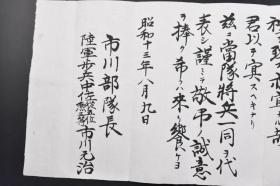 君以テ冥スヘキナリ
茲ニ當隊將兵一同ニ代
表シ謹ミテ敬弔ノ誠意
ヲ捧ク希ハ來リ饗ケヨ
昭和十三年八月九日
市川部隊長
陸軍歩兵中佐 市川元治